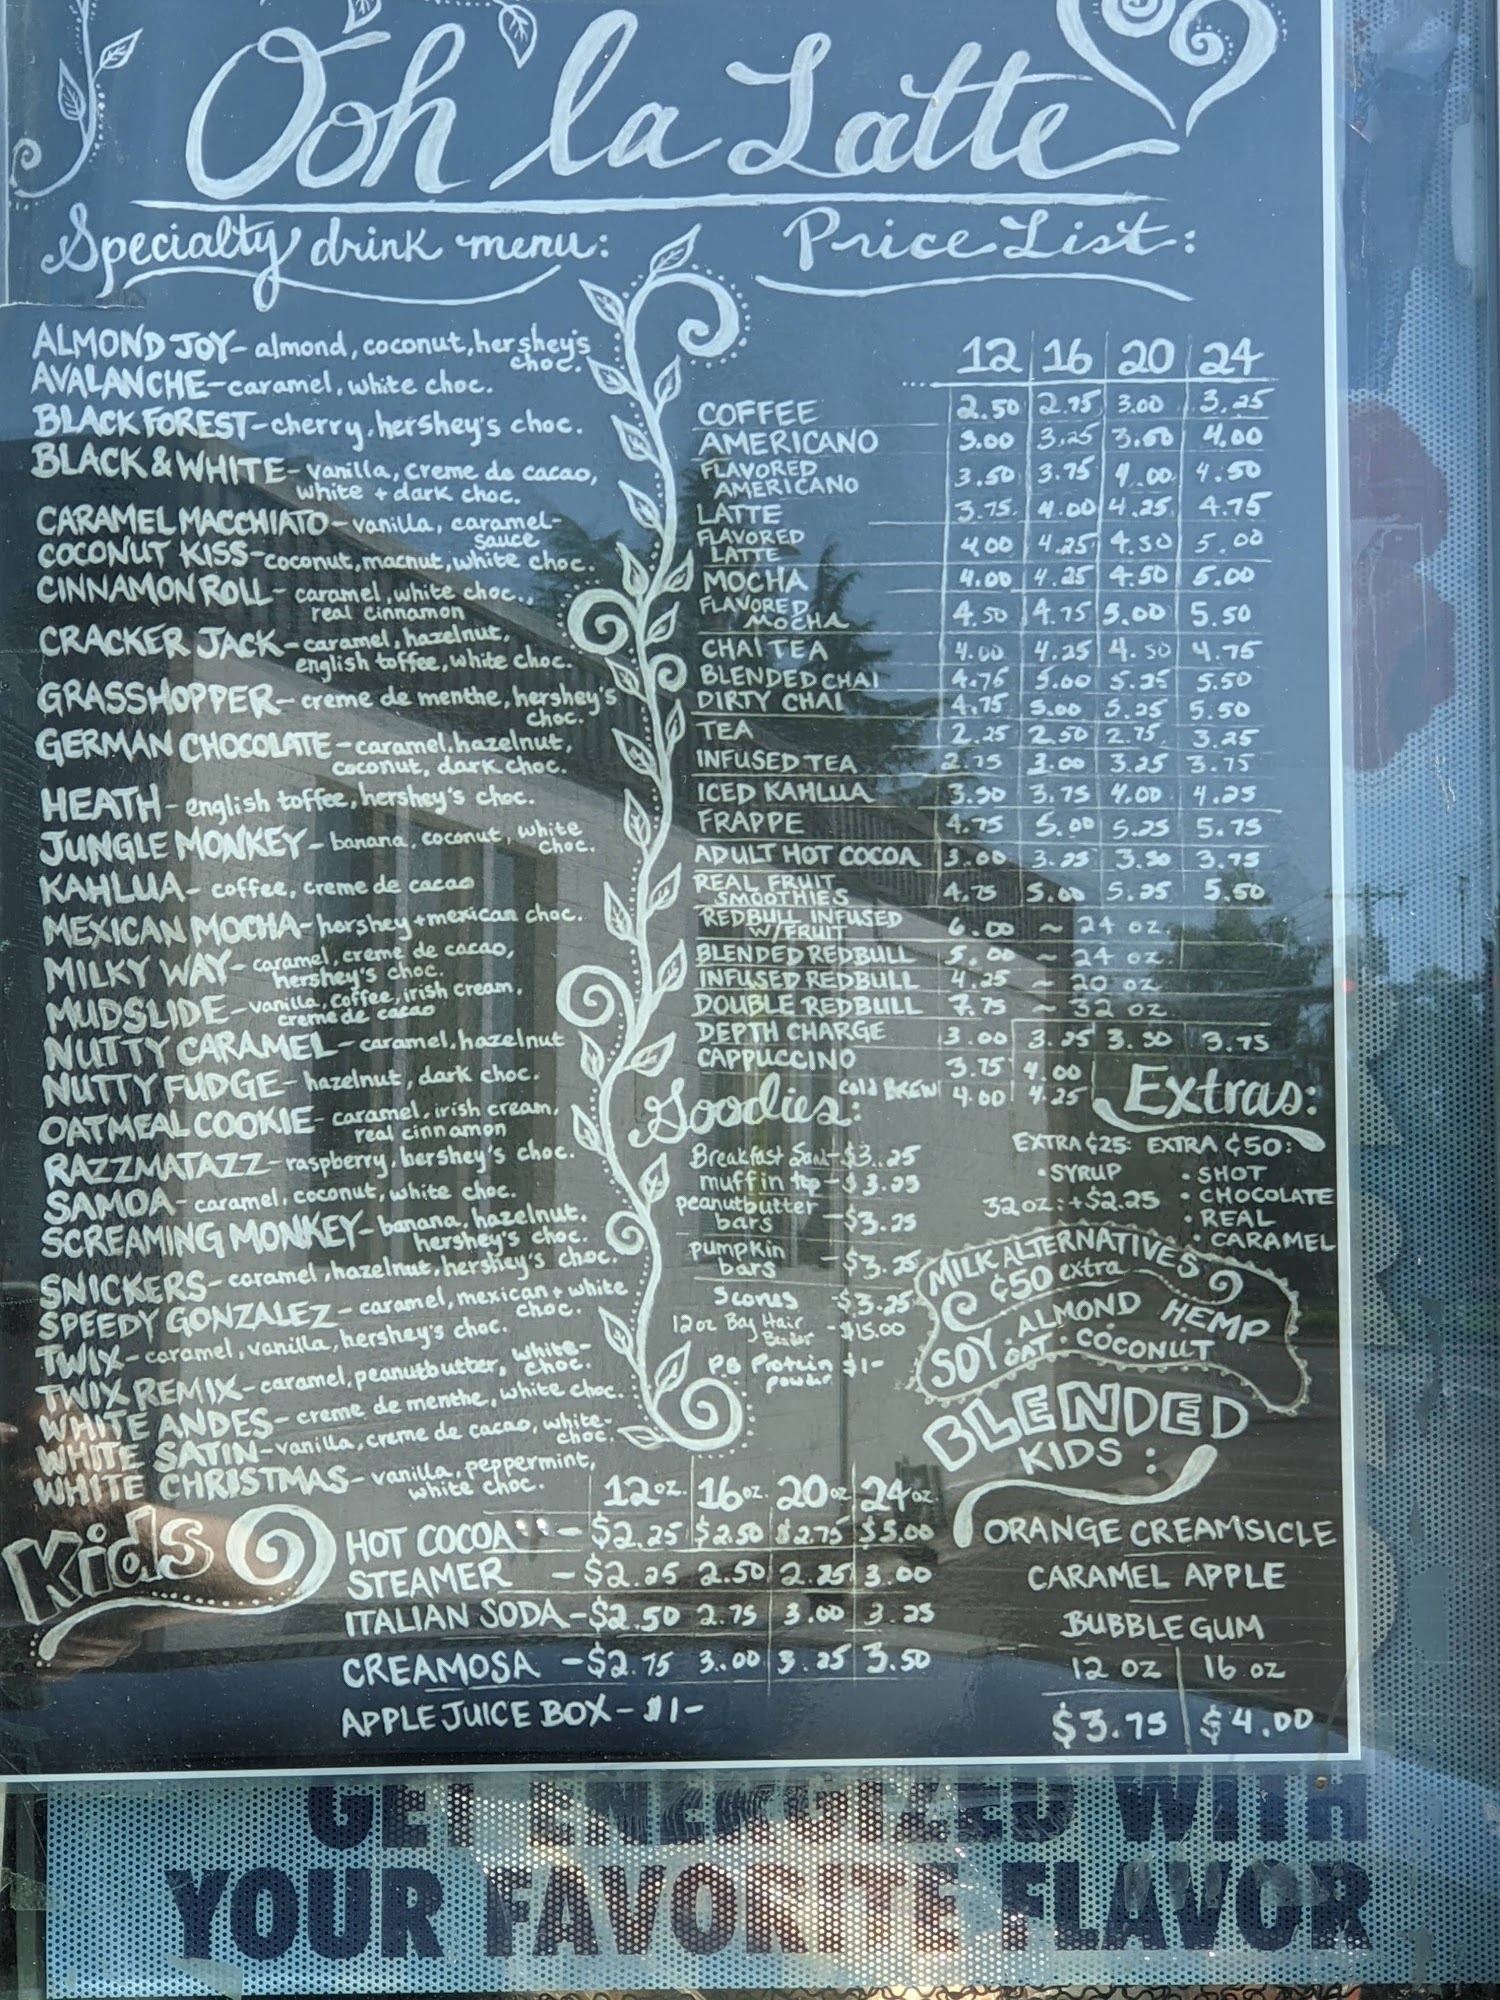 Ooh la Latte
Specialty drink menu:
ALMOND JOY- almond, coconut, hershey's
choc.
AVALANCHE- caramel, white choc.
BLACK FOREST- cherry, hershey's choc.
BLACK & WHITE- vanilla, creme de cacao,
white + dark choc.
CARAMEL MACCHIATO- vanilla, caramel-
sauce
COCONUT KISS- coconut, macnut, white choc.
CINNAMON ROLL- caramel, white choc.,
real cinnamon
CRACKER JACK- caramel, hazelnut,
english toffee, white choc.
GRASSHOPPER- creme de menthe, hershey's
choc.
GERMAN CHOCOLATE- caramel, hazelnut,
coconut, dark choc.
HEATH- english toffee, hershey's choc.
JUNGLE MONKEY- banana, coconut, white
choc.
KAHLUA- coffee, creme de cacao
MEXICAN MOCHA- hershey + mexican choc.
MILKY WAY- caramel, creme de cacao,
hershey's choc.
MUDSLIDE- vanilla, coffee, irish cream,
creme de cacao
NUTTY CARAMEL- caramel, hazelnut
NUTTY FUDGE- hazelnut, dark choc.
OATMEAL COOKIE- caramel, irish cream,
real cinnamon
RAZZMATAZZ- raspberry, hershey's choc.
SAMOA- caramel, coconut, white choc.
SCREAMING MONKEY- banana, hazelnut,
hershey's choc.
SNICKERS- caramel, hazelnut, hershey's choc.
SPEEDY GONZALEZ- caramel, mexican + white
choc.
TWIX- caramel, vanilla, hershey's choc.
TWIX REMIX- caramel, peanutbutter, white-
choc.
WHITE ANDES- creme de menthe, white choc.
WHITE SATIN- vanilla, creme de cacao, white-
choc.
WHITE CHRISTMAS- vanilla, peppermint,
white choc.
Price List:
12 16 20 24
COFFEE 2.50 2.75 3.00 3.25
AMERICANO 3.00 3.25 3.50 4.00
FLAVORED
AMERICANO 3.50 3.75 4.00 4.50
LATTE 3.75 4.00 4.25 4.75
FLAVORED
LATTE 4.00 4.25 4.50 5.00
MOCHA 4.00 4.25 4.50 5.00
FLAVORED
MOCHA 4.50 4.75 5.00 5.50
CHAI TEA 4.00 4.25 4.50 4.75
BLENDED CHAI 4.75 5.00 5.25 5.50
DIRTY CHAI 4.75 5.00 5.25 5.50
TEA 2.25 2.50 2.75 3.25
INFUSED TEA 2.75 3.00 3.25 3.75
ICED KAHLUA 3.50 3.75 4.00 4.25
FRAPPE 4.75 5.00 5.25 5.75
ADULT HOT COCOA 3.00 3.25 3.50 3.75
REAL FRUIT
SMOOTHIES 4.75 5.00 5.25 5.50
REDBULL INFUSED
W/FRUIT 6.00 ~ 24 oz.
BLENDED REDBULL 5.00 ~ 24 oz.
INFUSED REDBULL 4.25 ~ 20 oz
DOUBLE REDBULL 7.75 ~ 32 oz
DEPTH CHARGE 3.00 3.25 3.50 3.75
CAPPUCCINO 3.75 4.00
COLD BREW 4.00 4.25
Goodies:
Breakfast Sand- $3.25
muffin top- $3.25
peanutbutter
bars - $3.25
pumpkin
bars - $3.25
Scones - $3.25
12 oz Bag Hair
- $15.00
PB Protein $1-
powder
Extras:
EXTRA ¢25: EXTRA ¢50:
• SYRUP • SHOT
32 oz: + $2.25 • CHOCOLATE
• REAL
• CARAMEL
MILK ALTERNATIVES
¢50 extra
SOY • ALMOND HEMP
OAT • COCONUT
BLENDED
KIDS:
ORANGE CREAMSICLE
CARAMEL APPLE
BUBBLE GUM
12 oz 16 oz
$3.75 $4.00
Kids
12 oz. 16 oz. 20 oz 24 oz.
HOT COCOA - $2.25 $2.50 $2.75 $3.00
STEAMER - $2.25 2.50 2.75 3.00
ITALIAN SODA- $2.50 2.75 3.00 3.25
CREAMOSA - $2.75 3.00 3.25 3.50
APPLE JUICE BOX- $1-
GET ENERGIZED WITH
YOUR FAVORITE FLAVOR